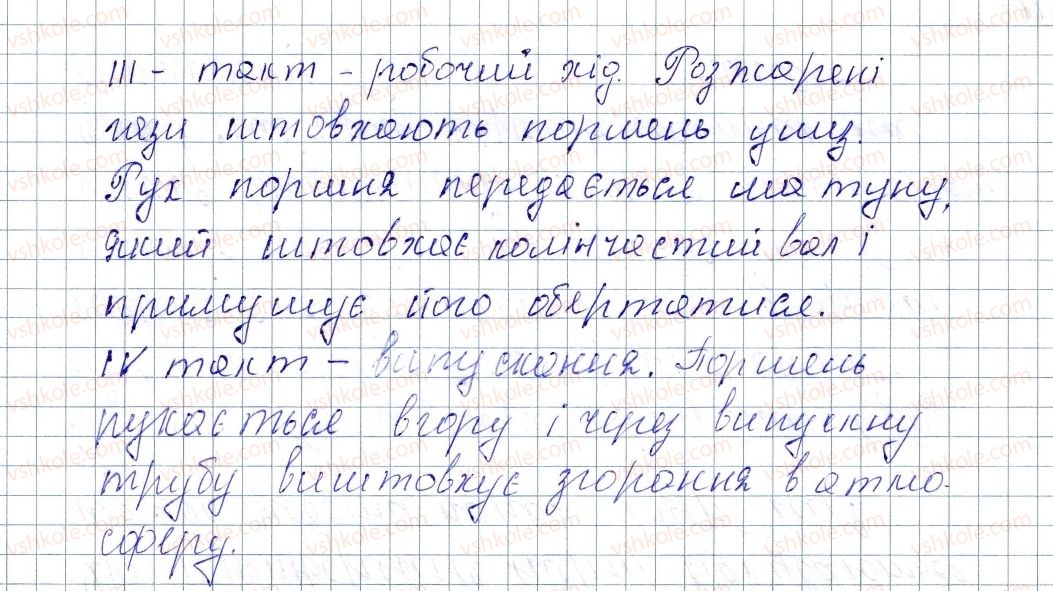 III - такт - робочий хід. Розжарені
гази штовхають поршень униз.
Рух поршня передається шатуну,
який штовхає колінчастий вал і
примушує його обертатися.
IV такт - випускання. Поршень
рухається вгору і через випускну
трубу виштовхує згорання в атмо-
сферу.